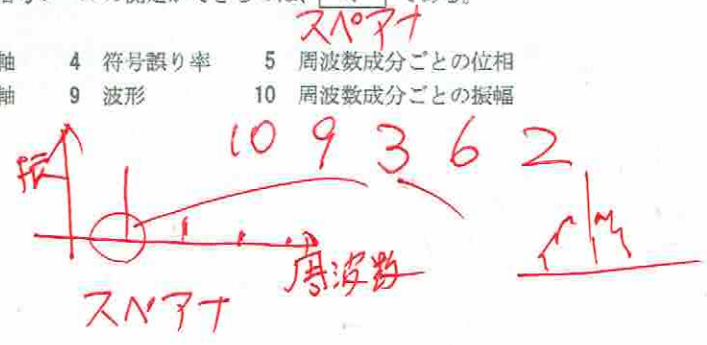 である。
スペアナ
軸 4 符号誤り率 5 周波数成分ごとの位相
軸 9 波形 10 周波数成分ごとの振幅
10 9 3 6 2
振
周波数
スペアナ